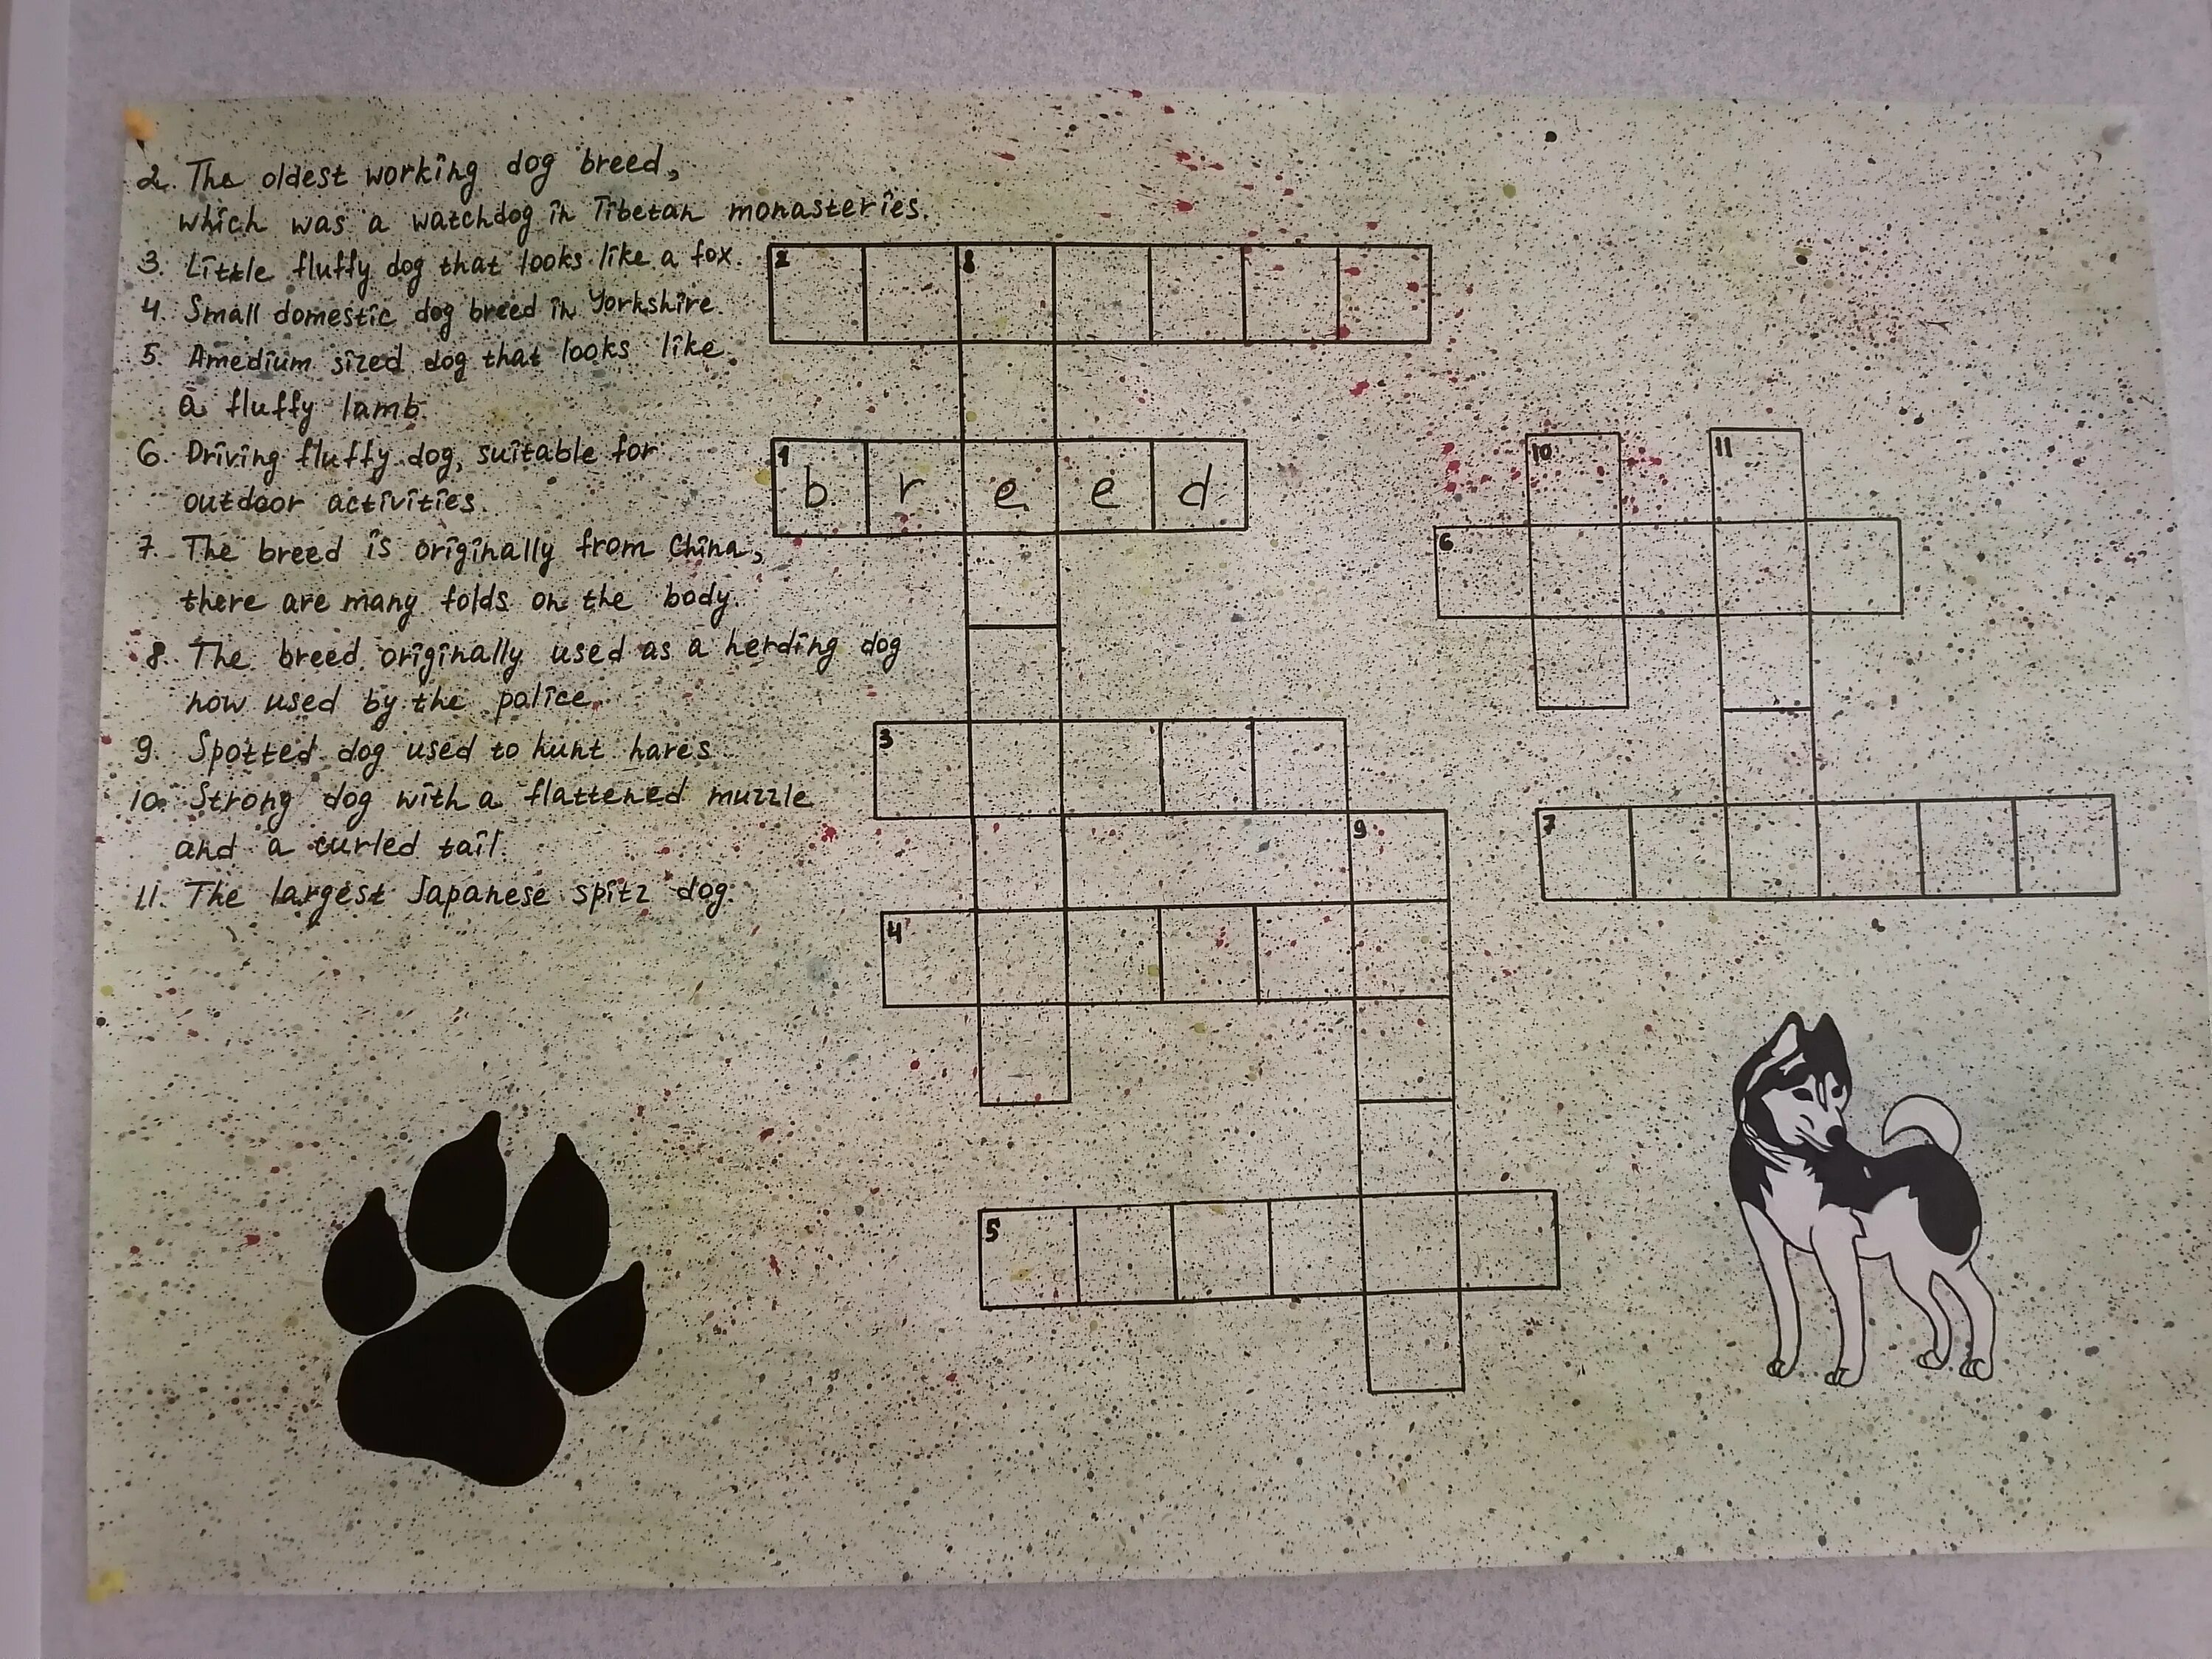 2. The oldest working dog breed,
which was a watchdog in Tibetan monasteries.
3. Little fluffy dog that looks like a fox.
4. Small domestic dog breed in Yorkshire.
5. Amedium sized dog that looks like
a fluffy lamb.
6. Driving fluffy dog, suitable for
outdoor activities.
7. The breed is originally from China,
there are many folds on the body.
8. The breed originally used as a herding dog
now used by the police.
9. Spotted dog used to hunt hares
10. Strong dog with a flattened muzzle
and a curled tail.
11. The largest Japanese spitz dog.
2 8
1 b r e e d
10 11
6
3
9
7
4
5